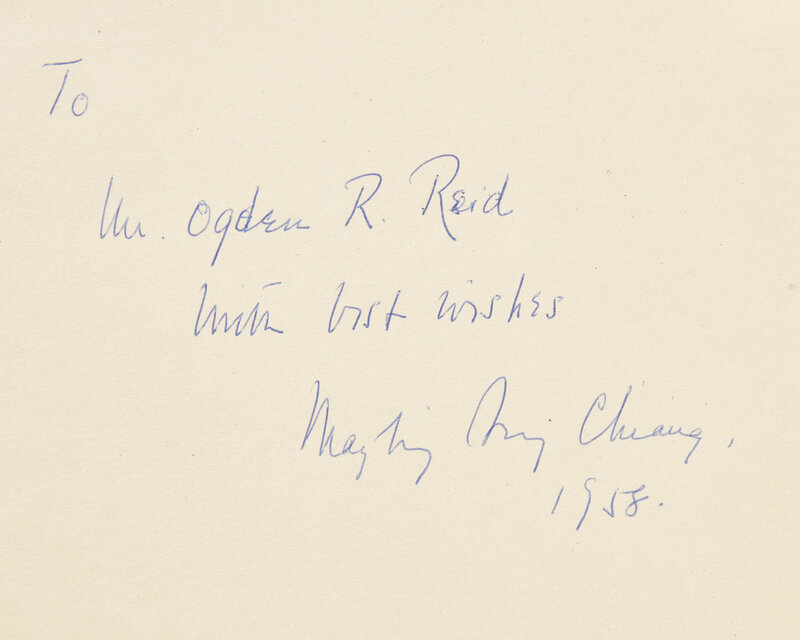 To
Mr. Ogden R. Reid
With best wishes
Mayling Soong Chiang,
1958.